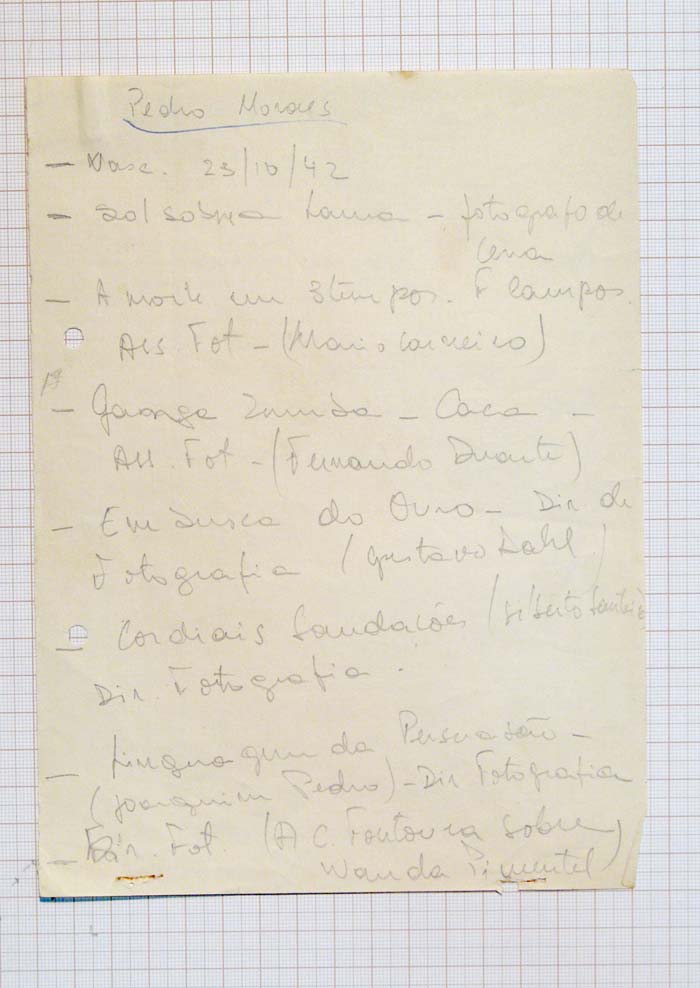 Pedro Moraes
— Nasc. 23/10/42
— Sol sobre a Lama — fotografo de
cena
— A morte em 3 tempos. F Campos.
Ass. Fot — (Mario Carneiro)
— Ganga Zumba — Caca —
Ass. Fot — (Fernando Duarte)
— Em busca do Ouro — Dir de
Fotografia (Gustavo Dahl)
— Cordiais Saudações (Gilberto Santeiro
Dir. Fotografia.
— Linguagem da Persuasão —
(Joaquim Pedro) — Dir Fotografia
— Dir. Fot. (A C. Fontoura sobre)
Wanda Pimentel